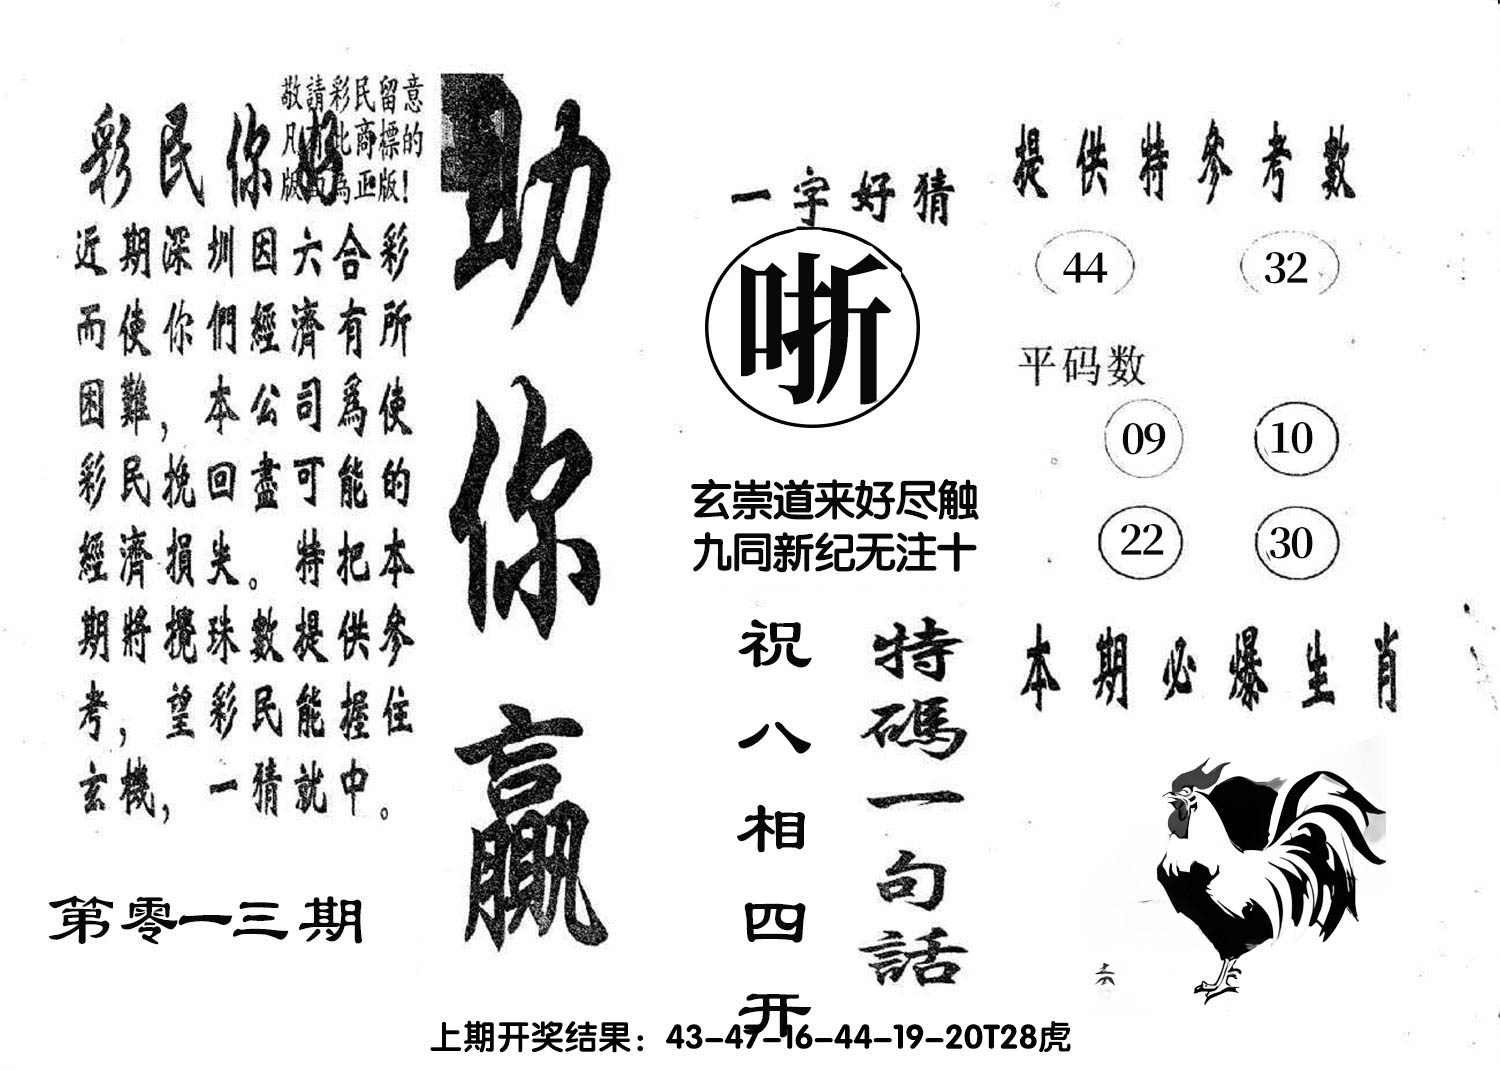 敬請彩民留意
凡有此商標的
版面為正版!
彩民你好
近期深圳因六合彩
而使你們經濟有所
困難，本公司爲使
彩民挽回盡可能的
經濟損失。特把本
期將攪珠數提供參
考，望彩民能握住
玄機，一猜就中。
第零一三期
助你贏
一字好猜
哳
玄崇道来好尽触
九同新纪无注十
特碼一句話
祝八相四开
提供特參考數
44 32
平码数
09 10
22 30
本期必爆生肖
上期开奖结果：43-47-16-44-19-20T28虎